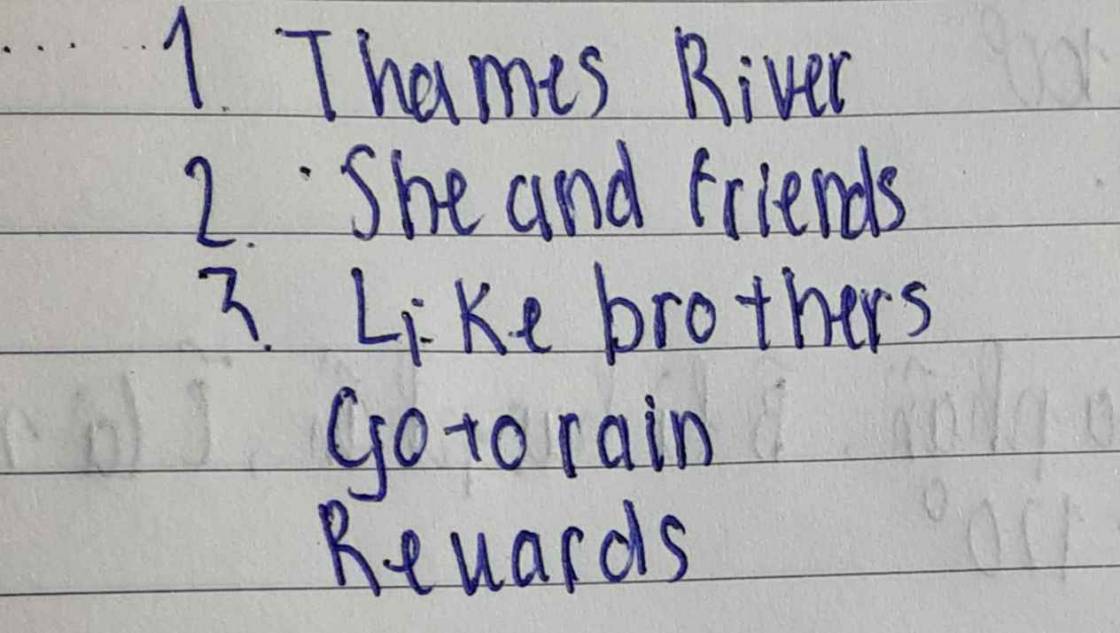 1. Thames River
2. She and friends
3. Like brothers
Go to rain
Rewards